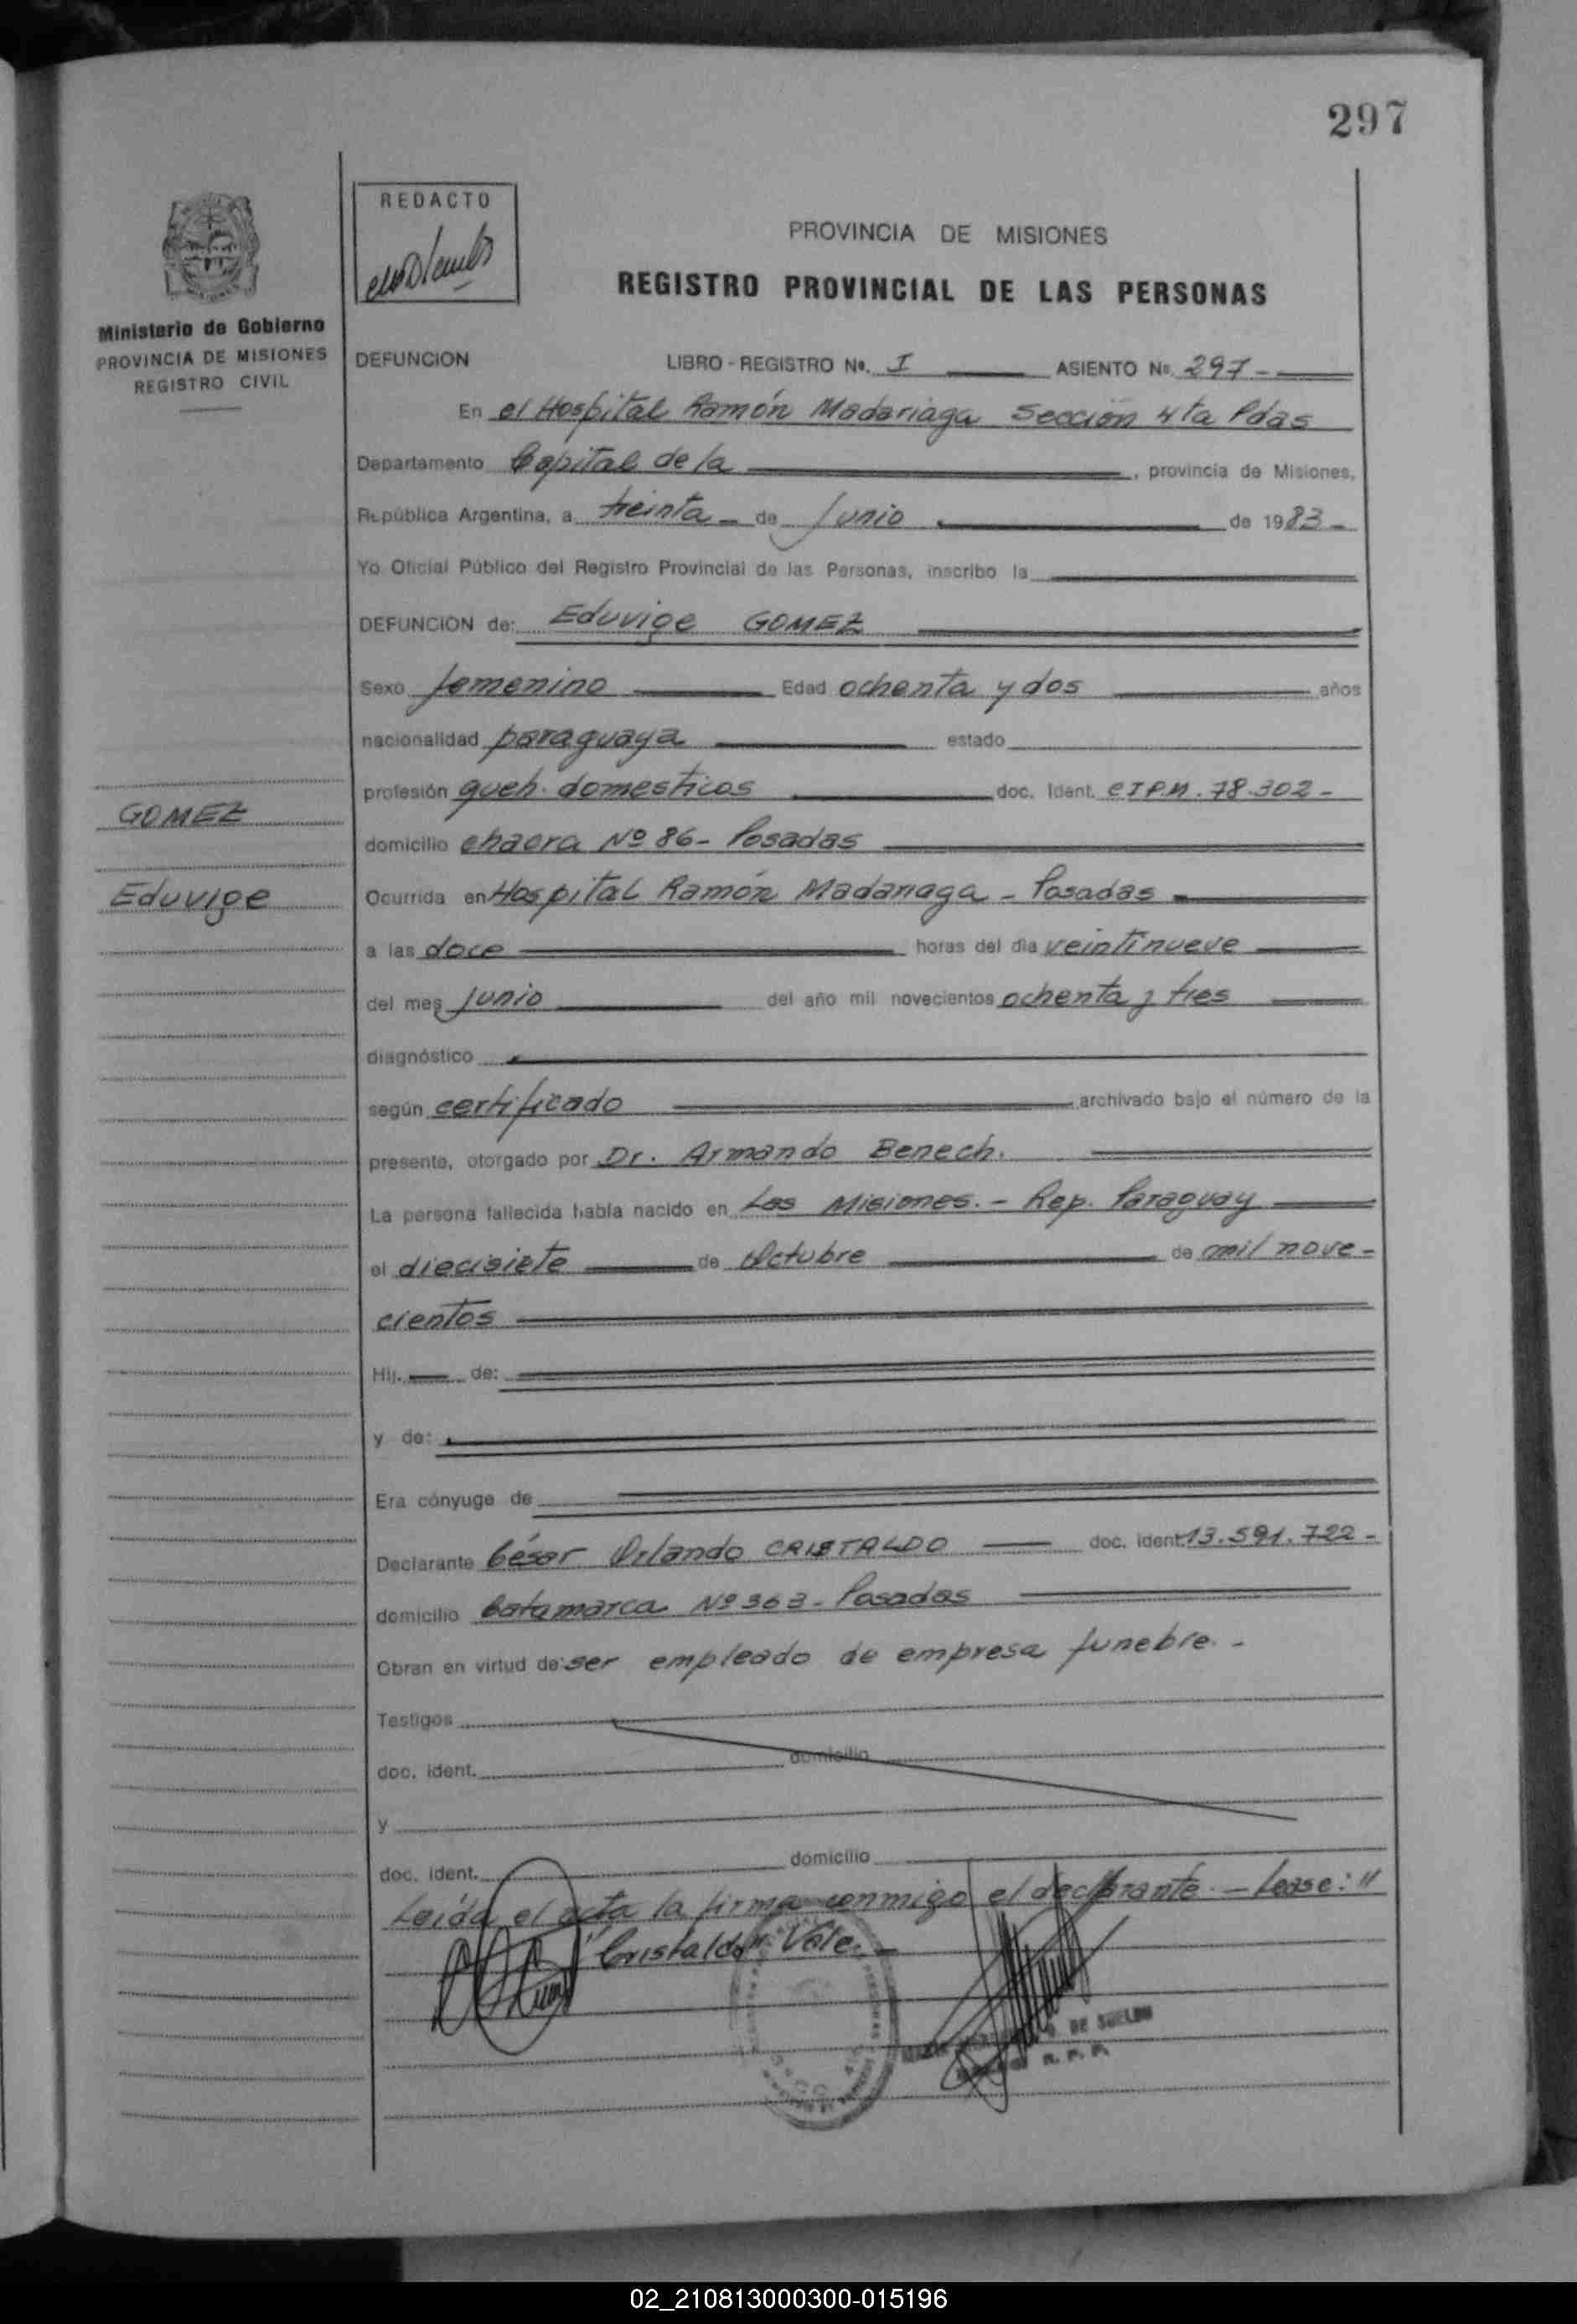 297
REDACTO
PROVINCIA DE MISIONES
REGISTRO PROVINCIAL DE LAS PERSONAS
Ministerio de Gobierno
PROVINCIA DE MISIONES
REGISTRO CIVIL
DEFUNCION LIBRO - REGISTRO No. I ASIENTO No. 297 -
En el Hospital Ramón Madariaga Sección 4ta Pdas
Departamento Capital de la , provincia de Misiones,
República Argentina, a treinta - de Junio de 1983 -
Yo Oficial Público del Registro Provincial de las Personas, inscribo la
DEFUNCION de: Eduvige GOMEZ
Sexo femenino Edad ochenta y dos años
nacionalidad paraguaya estado
profesión queh. domesticos doc. Ident. CIPM. 78.302 -
GOMEZ
domicilio chacra Nº 86 - Posadas
Eduvige
Ocurrida en Hospital Ramón Madariaga - Posadas -
a las doce horas del día veintinueve
del mes Junio del año mil novecientos ochenta y tres
diagnóstico
según certificado archivado bajo el número de la
presente, otorgado por Dr. Armando Benech.
La persona fallecida había nacido en Las Misiones. - Rep. Paraguay
el diecisiete de Octubre de mil nove-
cientos
Hij. de:
y de:
Era cónyuge de
Declarante César Orlando CRISTALDO doc. ident. 13.591.722 -
domicilio Catamarca Nº 363 - Posadas
Obran en virtud de: ser empleado de empresa funebre. -
Testigos
doc. ident. domicilio
y
doc. ident. domicilio
Leída el acta la firma conmigo el declarante. - Lease: "
"Cristaldo" Vale. -
DE SUELDO
R. P. P.
02_210813000300-015196